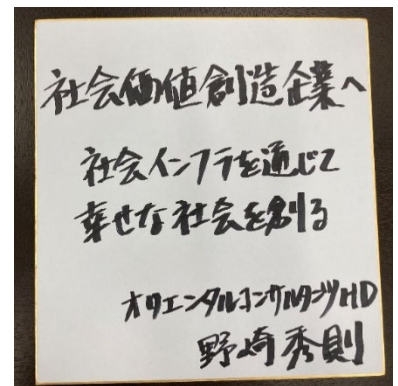 社会価値創造企業へ
社会インフラを通じて
幸せな社会を創る
オリエンタルコンサルタンツHD
野崎秀則